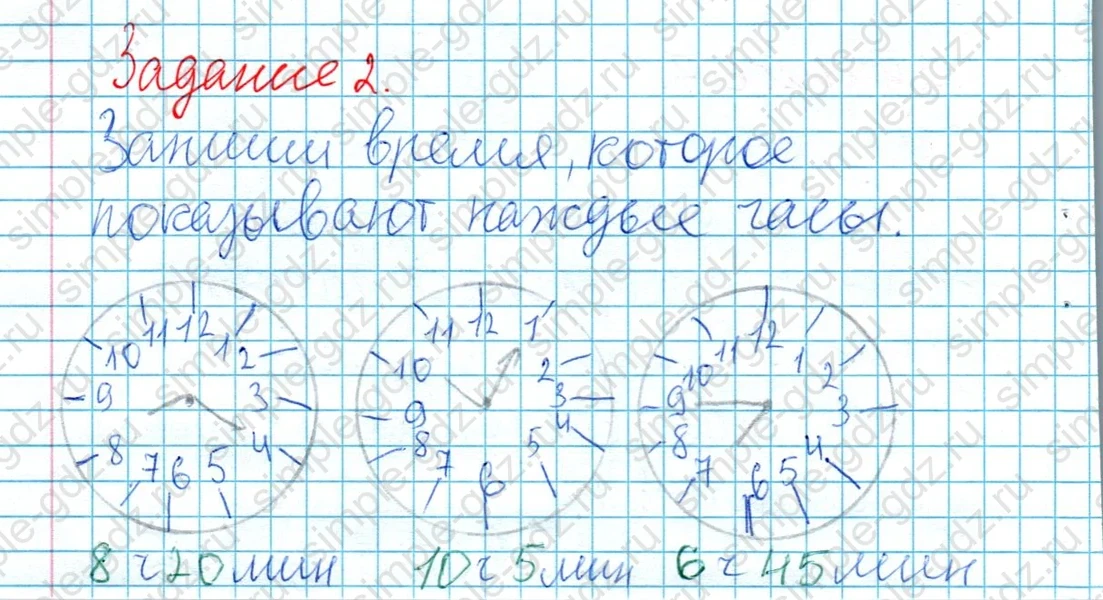 Задание 2.
Запиши время, которое
показывают каждые часы.
11 12 1
10 2
9 3
8 4
7 6 5
11 12 1
10 2
9 3
8 4
7 6 5
11 12 1
10 2
9 3
8 4
7 6 5
8 ч 20 мин 10 ч 5 мин 6 ч 45 мин
simple-gdz.ru